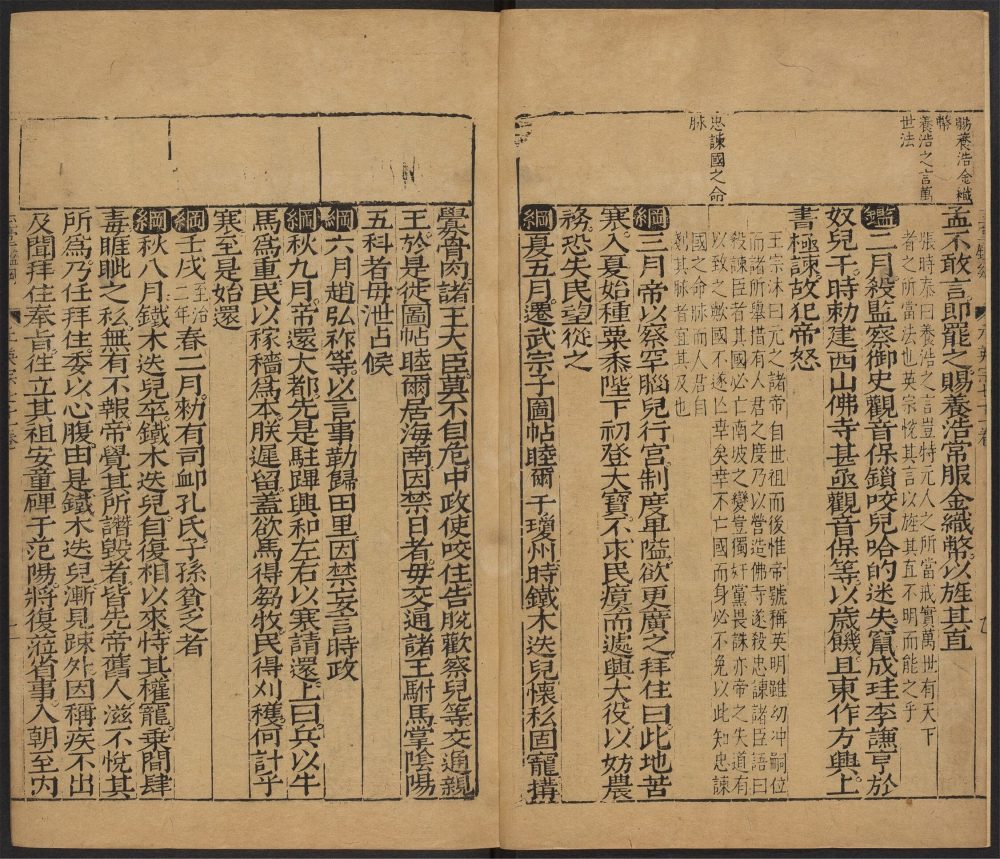 賜養浩金織
幣
養浩之言萬
世法
忠諫國之命
脉
孟不敢言即罷之賜養浩常服金織幣以旌其直
張時泰曰養浩之言豈特元人之所當戒實萬世有天下
者之所當法也英宗悅其言以旌其直不明而能之乎
鑑二月殺監察御史觀音保鎖咬兒哈的迷失竄成珪李謙亨於
奴兒干時勅建西山佛寺甚亟觀音保等以歲饑且東作方興上
書極諫故犯帝怒
王宗沐曰元之諸帝自世祖而後惟帝號稱英明雖幼冲嗣位
而諸所舉措有人君之度乃以營造佛寺遂殺忠諫諸臣語曰
殺諫臣者其國必亡南坡之變豈獨奸黨畏誅亦帝之失道有
以致之歟國不遂亡幸矣幸不亡國而身必不免以此知忠諫
國之命脉而人君自
剗其脉者宜其及也
綱三月帝以察罕腦兒行宮制度卑隘欲更廣之拜住曰此地苦
寒入夏始種粟黍陛下初登大寶不求民瘼而遽興大役以妨農
務恐失民望從之
綱夏五月遷武宗子圖帖睦爾于瓊州時鐵木迭兒懷私固寵搆
釁骨肉諸王大臣莫不自危中政使咬住告脫歡察兒等交通親
王於是徙圖帖睦爾居海南因禁日者毋交通諸王駙馬掌陰陽
五科者毋泄占候
綱六月趙弘祚等以言事勒歸田里因禁妄言時政
綱秋九月帝還大都先是駐蹕興和左右以寒請還上曰兵以牛
馬爲重民以稼穡爲本朕遲留蓋欲馬得芻牧民得刈穫何計乎
寒至是始還
綱壬戌至治二年春二月勑有司䘏孔氏子孫貧乏者
綱秋八月鐵木迭兒卒鐵木迭兒自復相以來恃其權寵乗間肆
毒睚眦之私無有不報帝覺其所譖毀者皆先帝舊人滋不悅其
所爲乃任拜住委以心腹由是鐵木迭兒漸見踈外因稱疾不出
及聞拜住奉旨徃立其祖安童碑于范陽將復蒞省事入朝至內